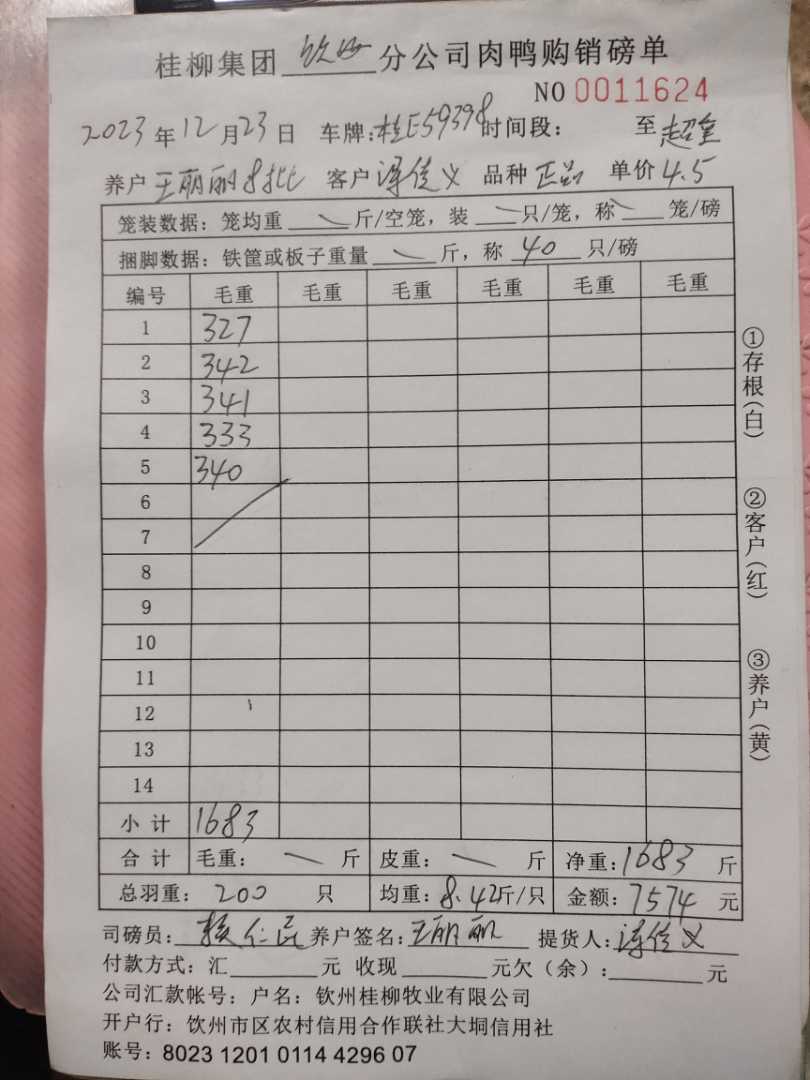 桂柳集团 钦州 分公司肉鸭购销磅单
NO 0011624
2023年12月23日 车牌:桂E59398 时间段: 至
养户 王丽丽8批 客户 佳义 品种 正品 单价 4.5
笼装数据:笼均重 斤/空笼,装 只/笼,称 笼/磅
捆脚数据:铁筐或板子重量 斤,称 40 只/磅
编号 毛重 毛重 毛重 毛重 毛重 毛重
1 327
2 342
3 341
4 333
5 340
6
7
8
9
10
11
12
13
14
小计 1683
合计 毛重: 斤 皮重: 斤 净重:1683 斤
总羽重: 200 只 均重:8.42斤/只 金额:7574 元
司磅员: 养户签名:王丽丽 提货人: 佳义
付款方式:汇 元 收现 元欠(余): 元
公司汇款帐号:户名:钦州桂柳牧业有限公司
开户行:钦州市区农村信用合作联社大垌信用社
账号:8023 1201 0114 4296 07
①存根(白)
②客户(红)
③养户(黄)